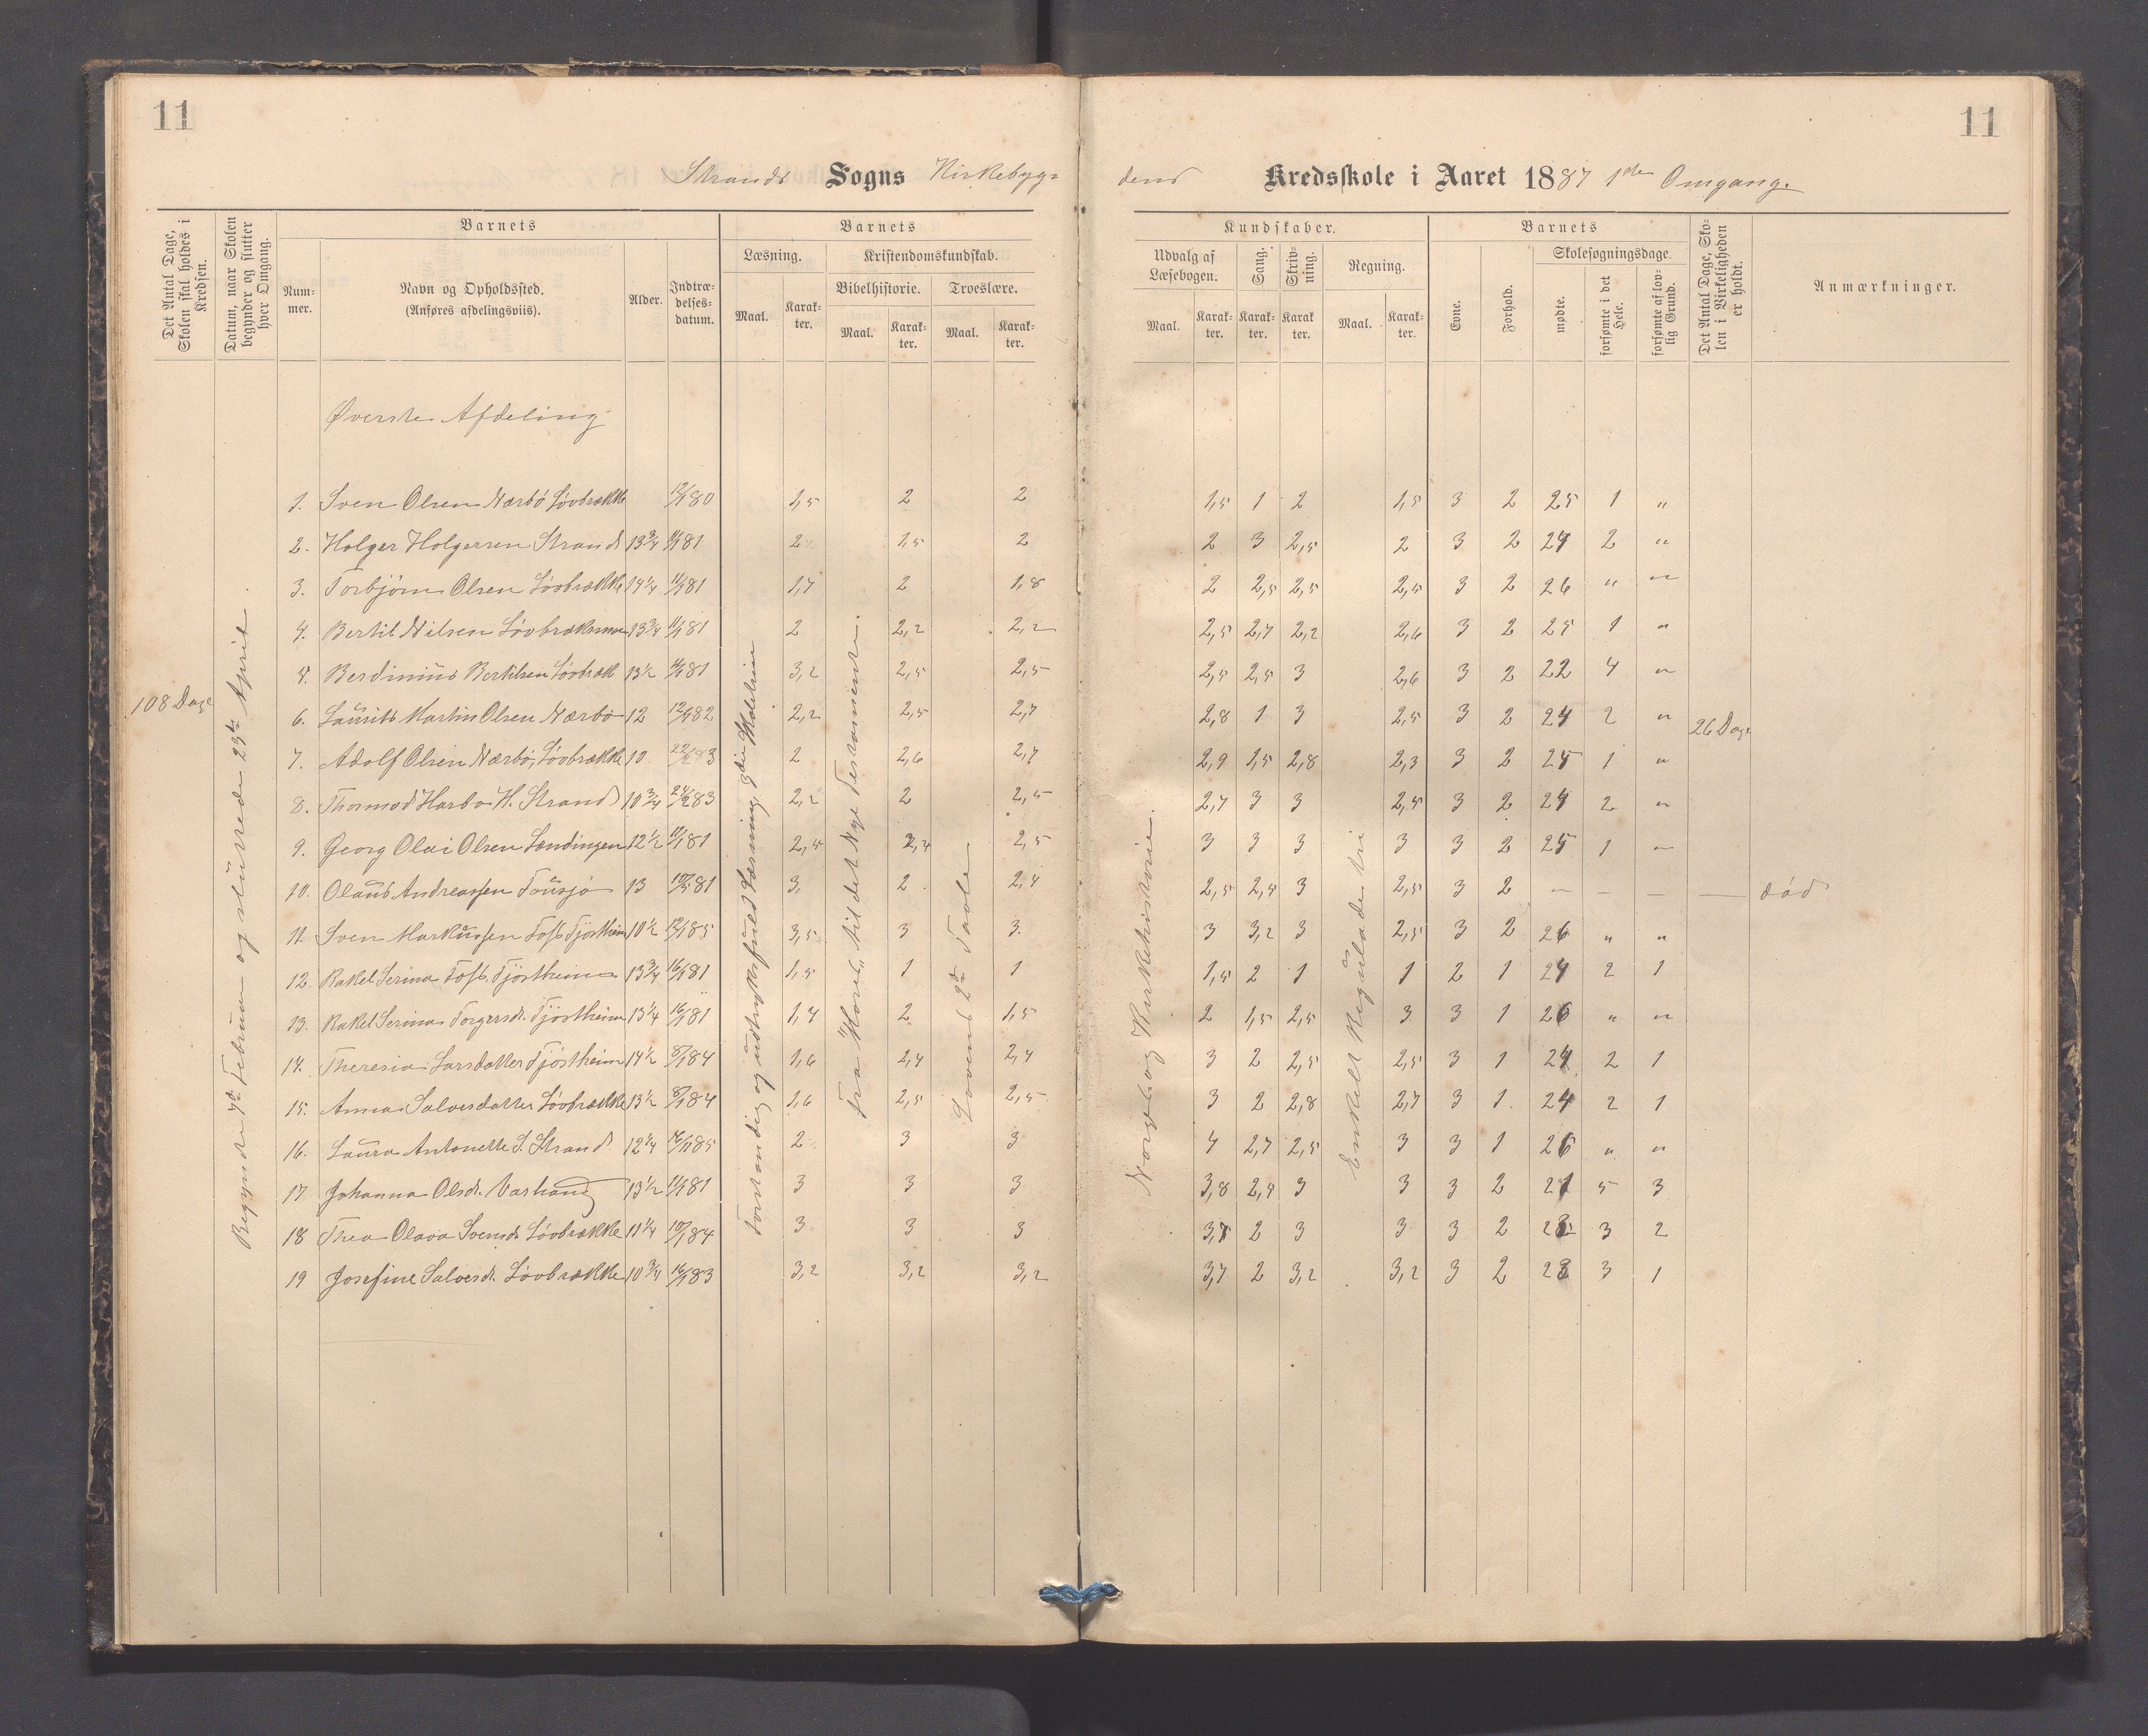 11
11
Strands Sogns Kirkebyg=
dens Kredsskole i Aaret 1887 1ste Omgang.
Det Antal Dage, Skolen skal holdes i Kredsen.
Datum, naar Skolen begynder og slutter hver Omgang.
Barnets
Nummer.
Navn og Opholdssted.
(Anføres afdelingsviis).
Alder.
Indtrædelsesdatum.
Barnets
Læsning.
Maal.
Karakter.
Kristendomskundskab.
Bibelhistorie.
Maal.
Karakter.
Troeslære.
Maal.
Karakter.
Kundskaber.
Udvalg af Læsebogen.
Maal.
Karakter.
Sang.
Karakter.
Skrivning.
Karakter.
Regning.
Maal.
Karakter.
Barnets
Evne.
Forhold.
Skolesøgningsdage.
mødte.
forsømte i det Hele.
forsømte af lovlig Grund.
Det Antal Dage, Skolen i Virkeligheden er holdt.
Anmærkninger.
Øverste Afdeling
108 Dage
Begyndte 7de Februar og sluttede 23de April.
Forstandig og udtryksfuld Læsning, 3die Skoletrin
Fra "Kores" til det Nye Testamente.
Lovens 2den Tavle
Norges og Kirkehistorie.
Enkelt Reguladetri
26 Dage
1. Sven Olsen Nærbö Lövbrække 12/1 80 1,5 2 2 1,5 1 2 1,5 3 2 25 1 "
2. Holger Holgersen Strand 13 3/4 11/1 81 2 1,5 2 2 3 2,5 2 3 2 24 2 "
3. Torbjörn Olsen Lövbrække 14 1/4 11/1 81 1,7 2 1,8 2 2,5 2,5 2,5 3 2 26 " "
4. Bertil Nilsen Lövbræksmoe 13 3/4 11/1 81 2 2,2 2,2 2,5 2,7 2,2 2,6 3 2 25 1 "
5. Berdinius Bertilsen Lövbræk 13 1/2 11/1 81 3,2 2,5 2,5 2,5 2,5 3 2,6 3 2 22 4 "
6. Laurits Martin Olsen Nærbö 12 12/9 82 2,2 2,5 2,7 2,8 1 3 2,5 3 2 24 2 "
7. Adolf Olsen Nærbö, Lövbrække 10 22/1 83 2 2,6 2,7 2,9 1,5 2,8 2,3 3 2 25 1 "
8. Thormod Harbo H. Strand 10 3/4 24/9 83 2,2 2 2,5 2,7 3 3 2,5 3 2 24 2 "
9. Georg Olai Olsen Lændingen 12 1/2 11/1 81 2,5 2,4 2,5 3 3 3 3 3 2 25 1 "
10. Olaus Andreassen Tousjö 13 10/5 81 3, 2 2,4 2,5 2,4 3 2,5 3 2 — — — — död
11. Sven Markussen Fosb. Tjöstheim 10 1/2 12/1 85 3,5 3 3. 3 3,2 3 2,5 3 2 26 " "
12. Rakel Serina Tofb. Tjöstheim 13 3/4 16/1 81 1,5 1 1 1,5 2 1 1 2 1 24 2 1
13. Rakel Serina Torgersdr. Tjöstheim 13 1/4 16/1 81 1,7 2 1,5 2 1,5 2,5 3 3 1 26 " "
14. Theresia Larsdatter Tjöstheim 14 1/2 8/1 84 1,6 2,4 2,4 3 2 2,5 2,5 3 1 24 2 1
15. Anna Salvesdatter Lövbrække 13 1/2 8/1 84 1,6 2,5 2,5 3 2 2,8 2,7 3 1 24 2 1
16. Laura Antonette S. Strand 12 1/4 16/11 85 2 3 3 4 2,7 2,5 3 3 1 26 " "
17 Johanna Olsdr. Varland 13 1/2 11/1 81 3 3 3 3,8 2,4 3 3 3 2 21 5 3
18 Thea Olava Svensdr. Lövbrække 11 1/4 10/1 84 3 3 3 3,7 2 3 3 3 2 23 3 2
19 Josefine Salvesdr. Lövbrække 10 3/4 16/1 83 3,2 3,2 3,2 3,7 2 3,2 3,2 3 2 23 3 1